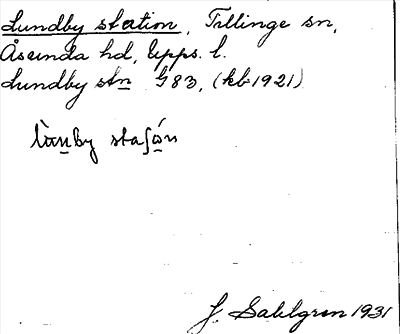 Lundby station, Tillinge sn,
Åsunda hd, Upps. l.
Lundby stn G83, (kb 1921)
lùnby staʃón
J. Sahlgren 1931